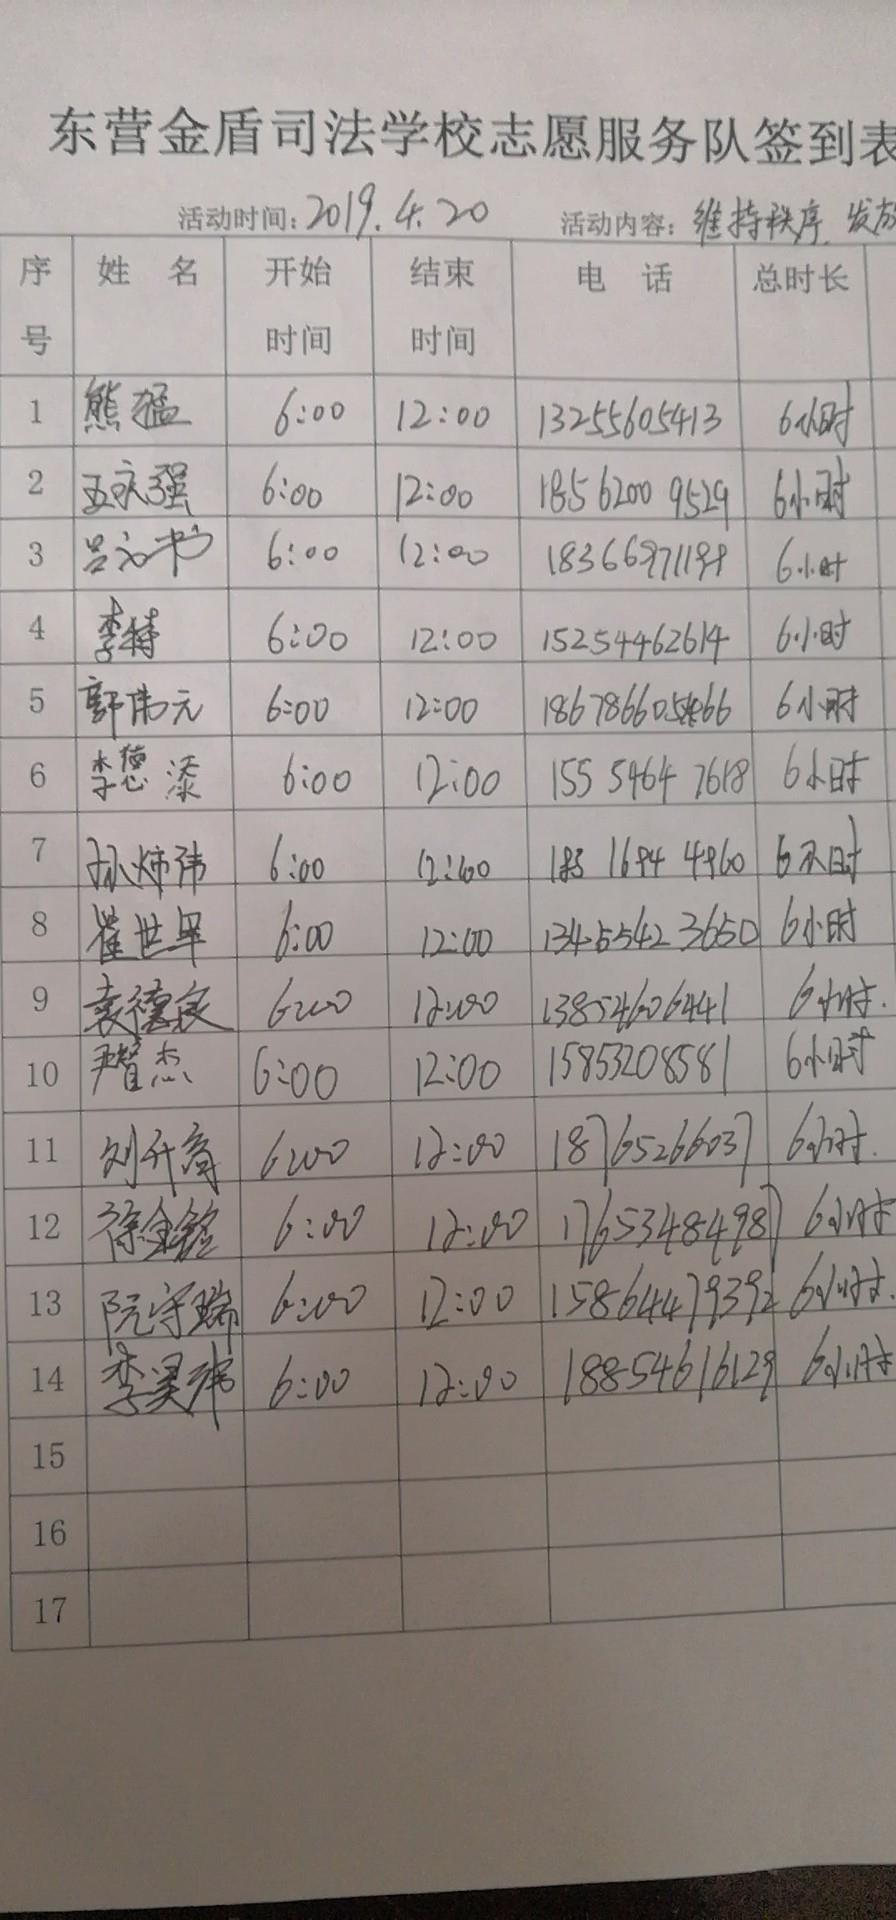 东营金盾司法学校志愿服务队签到表
活动时间：2019.4.20 活动内容：维持秩序 发放
序号 姓 名 开始时间 结束时间 电 话 总时长
1 熊猛 6:00 12:00 13255605413 6小时
2 王庆强 6:00 12:00 185 6200 9529 6小时
3 吕文书 6:00 12:00 6小时
4 李特 6:00 12:00 15254462614 6小时
5 郭伟元 6:00 12:00 6小时
6 李德漆 6:00 12:00 155 5464 7618 6小时
7 孙炜 6:00 12:00 6小时
8 崔世军 6:00 12:00 134 5542 3650 6小时
9 袁德良 6:00 12:00 13854606441 6小时.
10 尹智杰 6:00 12:00 15853208581 6小时
11 刘升高 6:00 12:00 18765266037 6小时.
12 徐金铭 6:00 12:00 17653484987 6小时
13 阮守瑞 6:00 12:00 15864479392 6小时.
14 李昊玮 6:00 12:00 18854616129 6小时
15
16
17